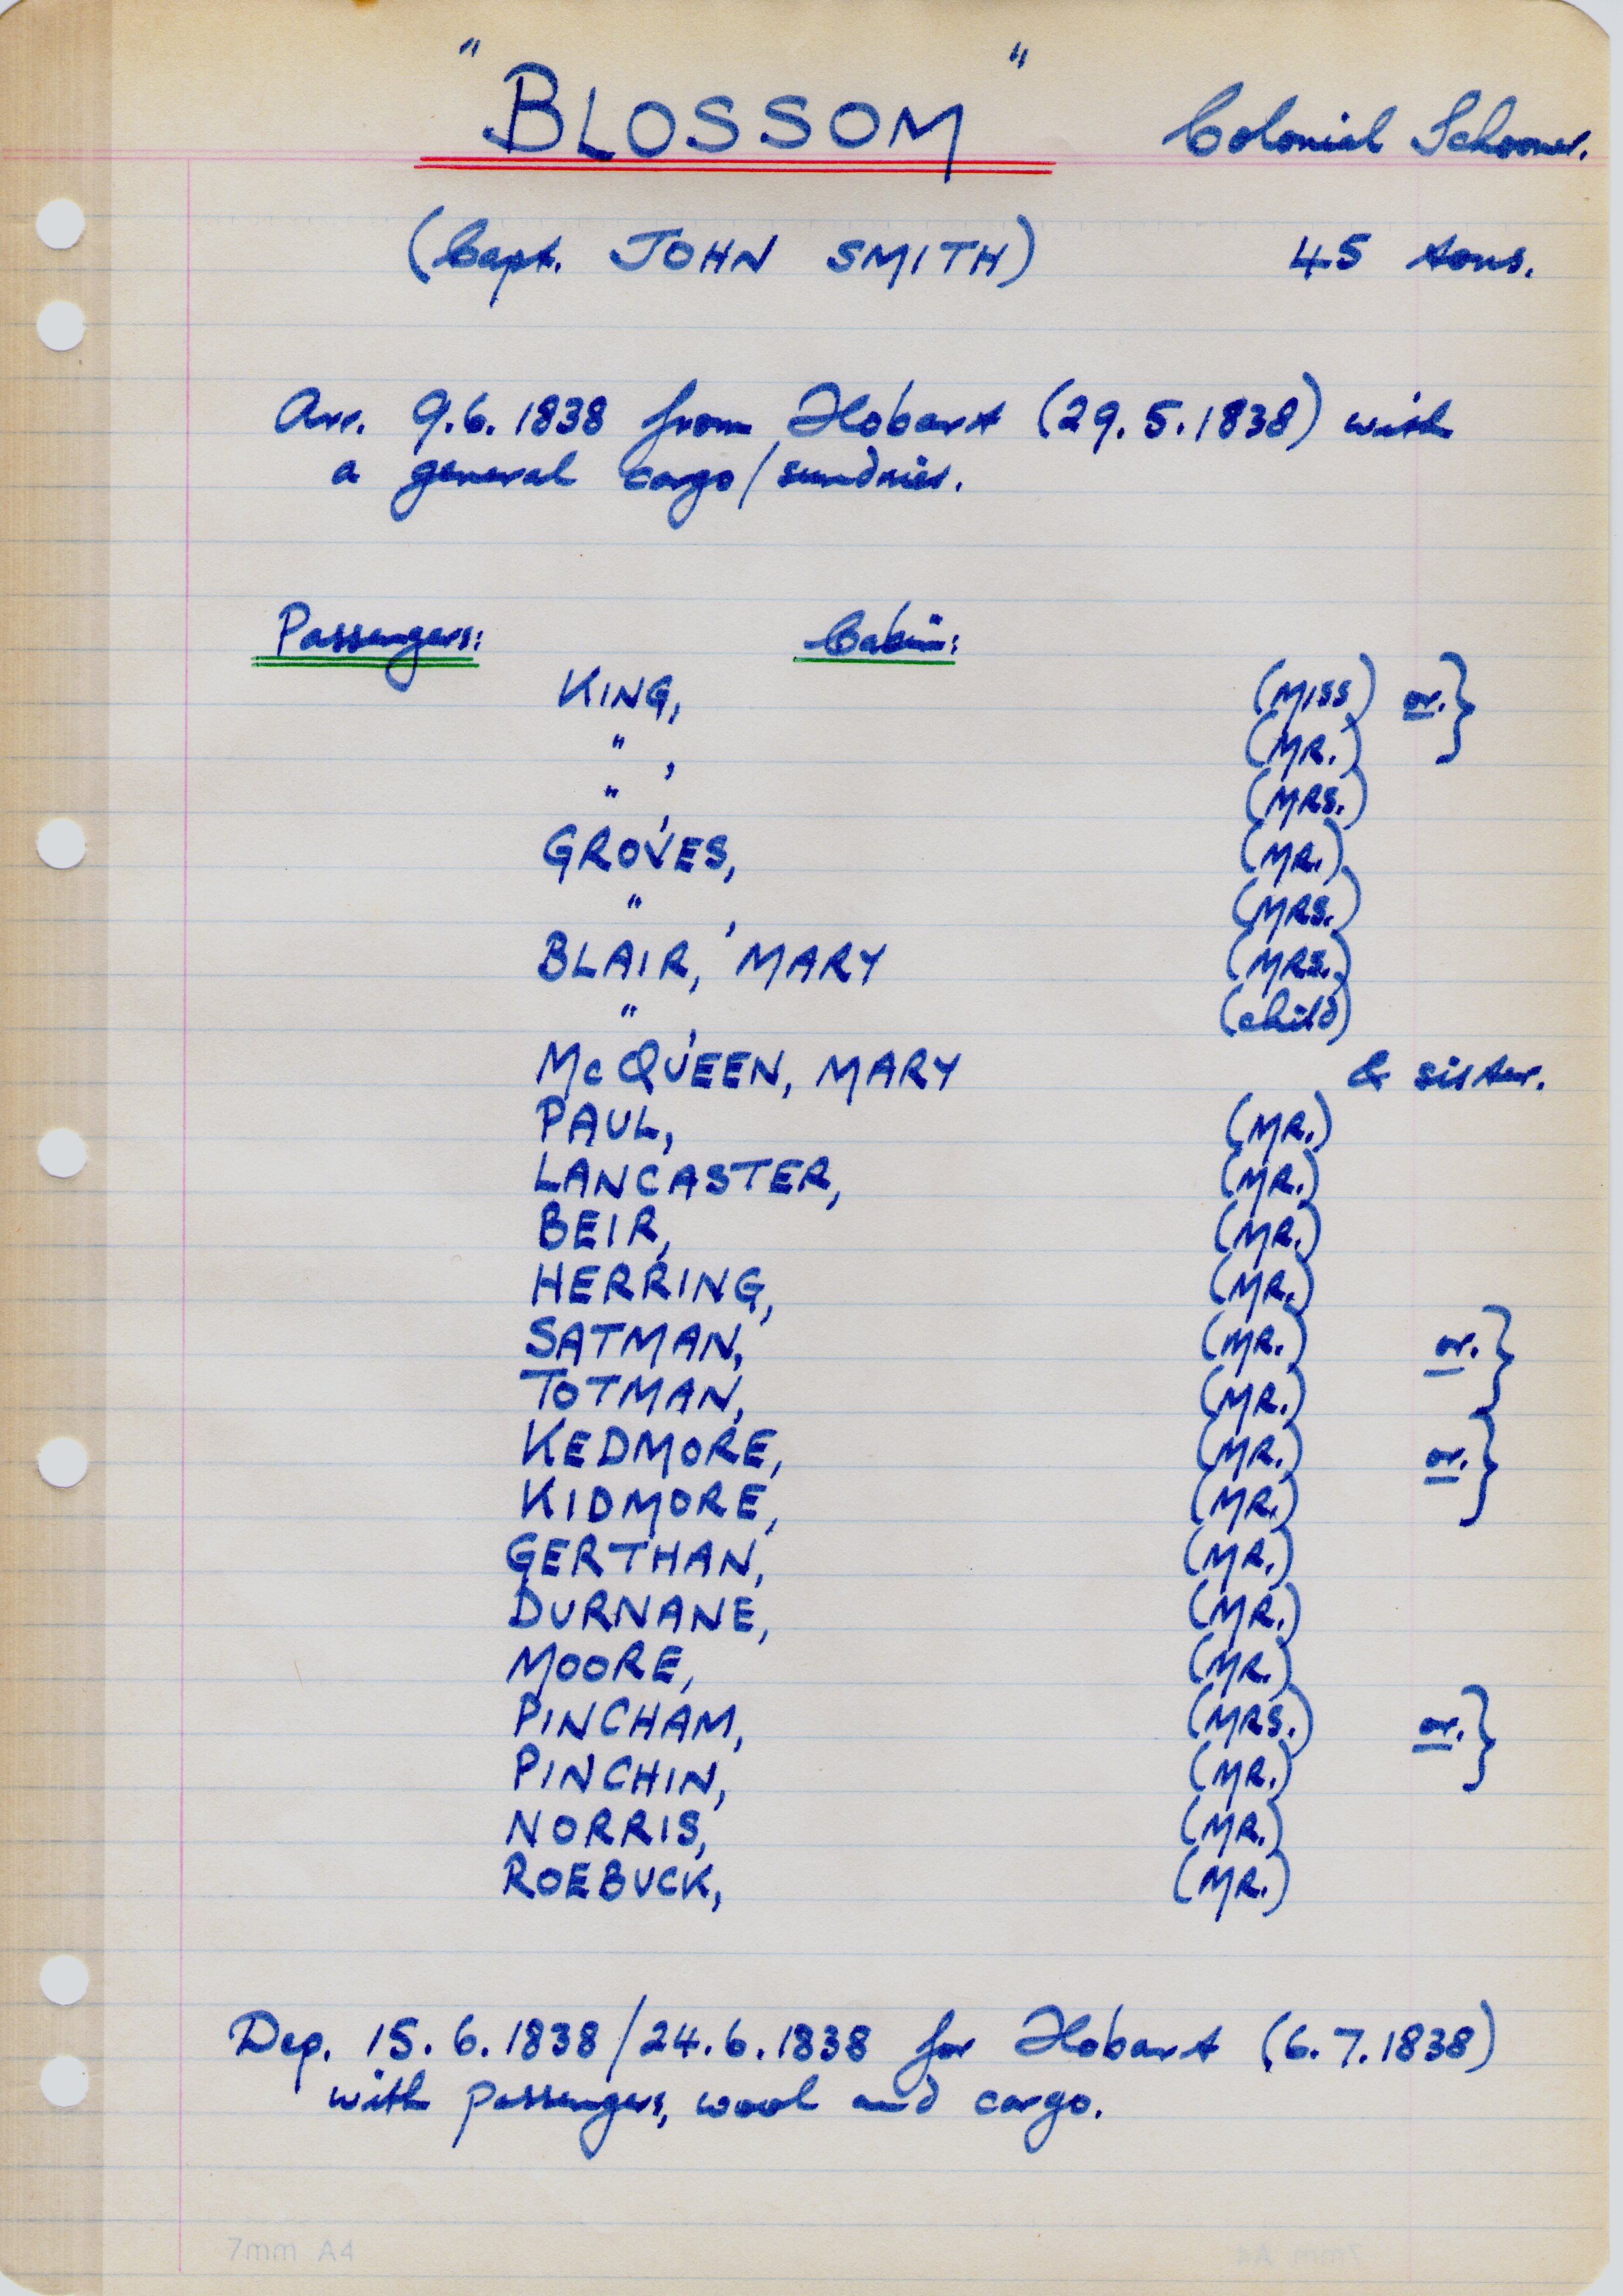 "BLOSSOM" Colonial Schooner.
(Capt. JOHN SMITH) 45 tons.
Arr. 9.6.1838 from Hobart (29.5.1838) with
a general cargo/sundries.
Passengers: Cabin:
KING, (MISS) or. }
" , (MR.)
" , (MRS.)
GROVES, (MR.)
" , (MRS.)
BLAIR, MARY (MRS.)
" , (child)
McQUEEN, MARY & sister.
PAUL, (MR.)
LANCASTER, (MR.)
BEIR, (MR.)
HERRING, (MR.)
SATMAN, (MR.) or. }
TOTMAN, (MR.)
KEDMORE, (MR.) or. }
KIDMORE, (MR.)
GERTHAN, (MR.)
DURNANE, (MR.)
MOORE, (MR.)
PINCHAM, (MRS.) or. }
PINCHIN, (MR.)
NORRIS, (MR.)
ROEBUCK, (MR.)
Dep. 15.6.1838/24.6.1838 for Hobart (6.7.1838)
with passengers, wool and cargo.
7mm A4